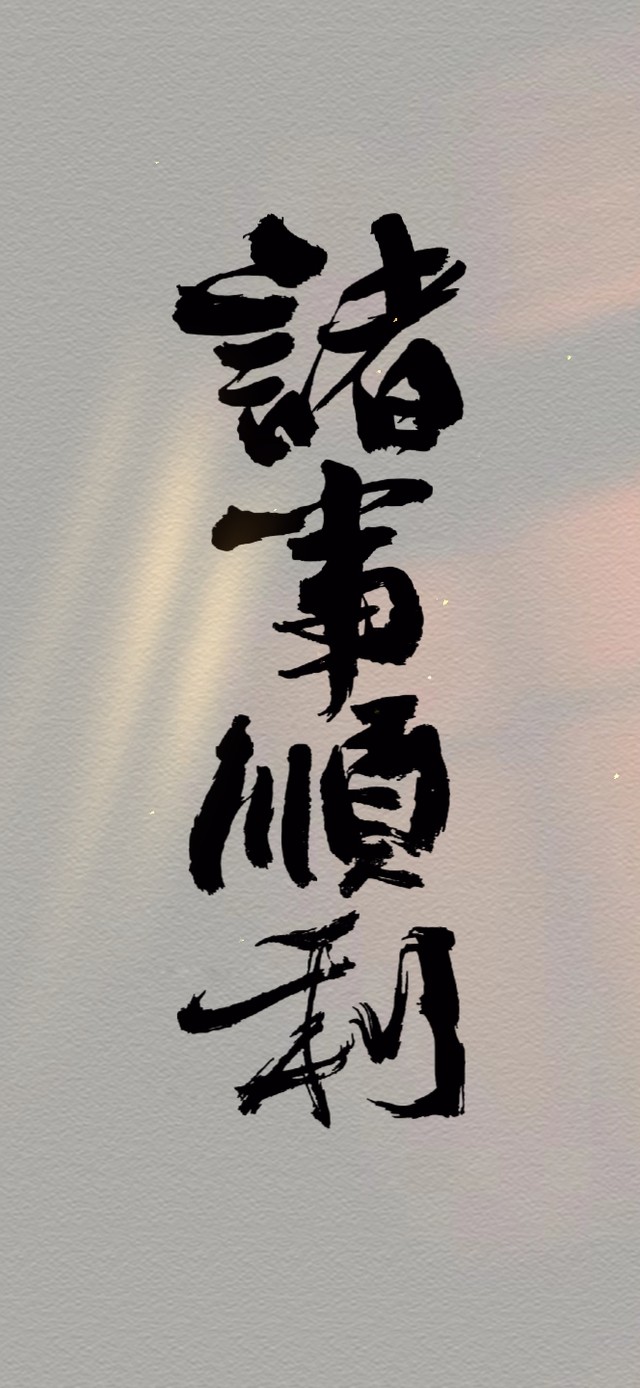 諸事順利